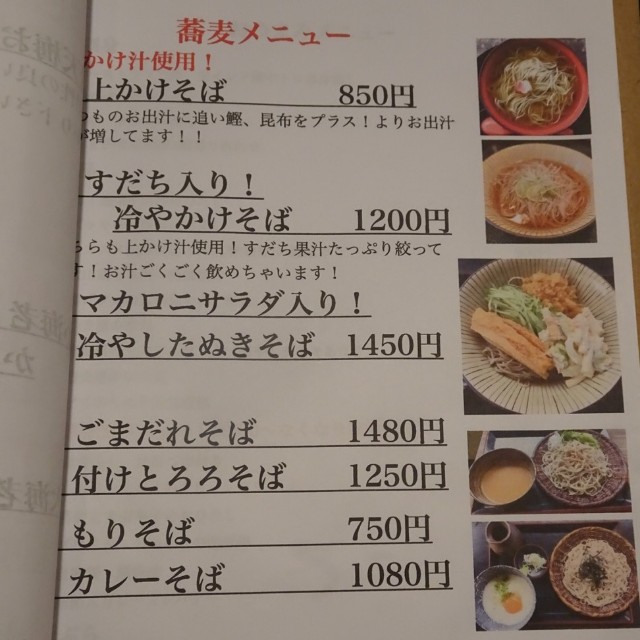 蕎麦メニュー
かけ汁使用！
上かけそば 850円
つものお出汁に追い鰹、昆布をプラス！よりお出汁
が増してます！！
すだち入り！
冷やかけそば 1200円
ちらも上かけ汁使用！すだち果汁たっぷり絞って
す！お汁ごくごく飲めちゃいます！
マカロニサラダ入り！
冷やしたぬきそば 1450円
ごまだれそば 1480円
付けとろろそば 1250円
もりそば 750円
カレーそば 1080円